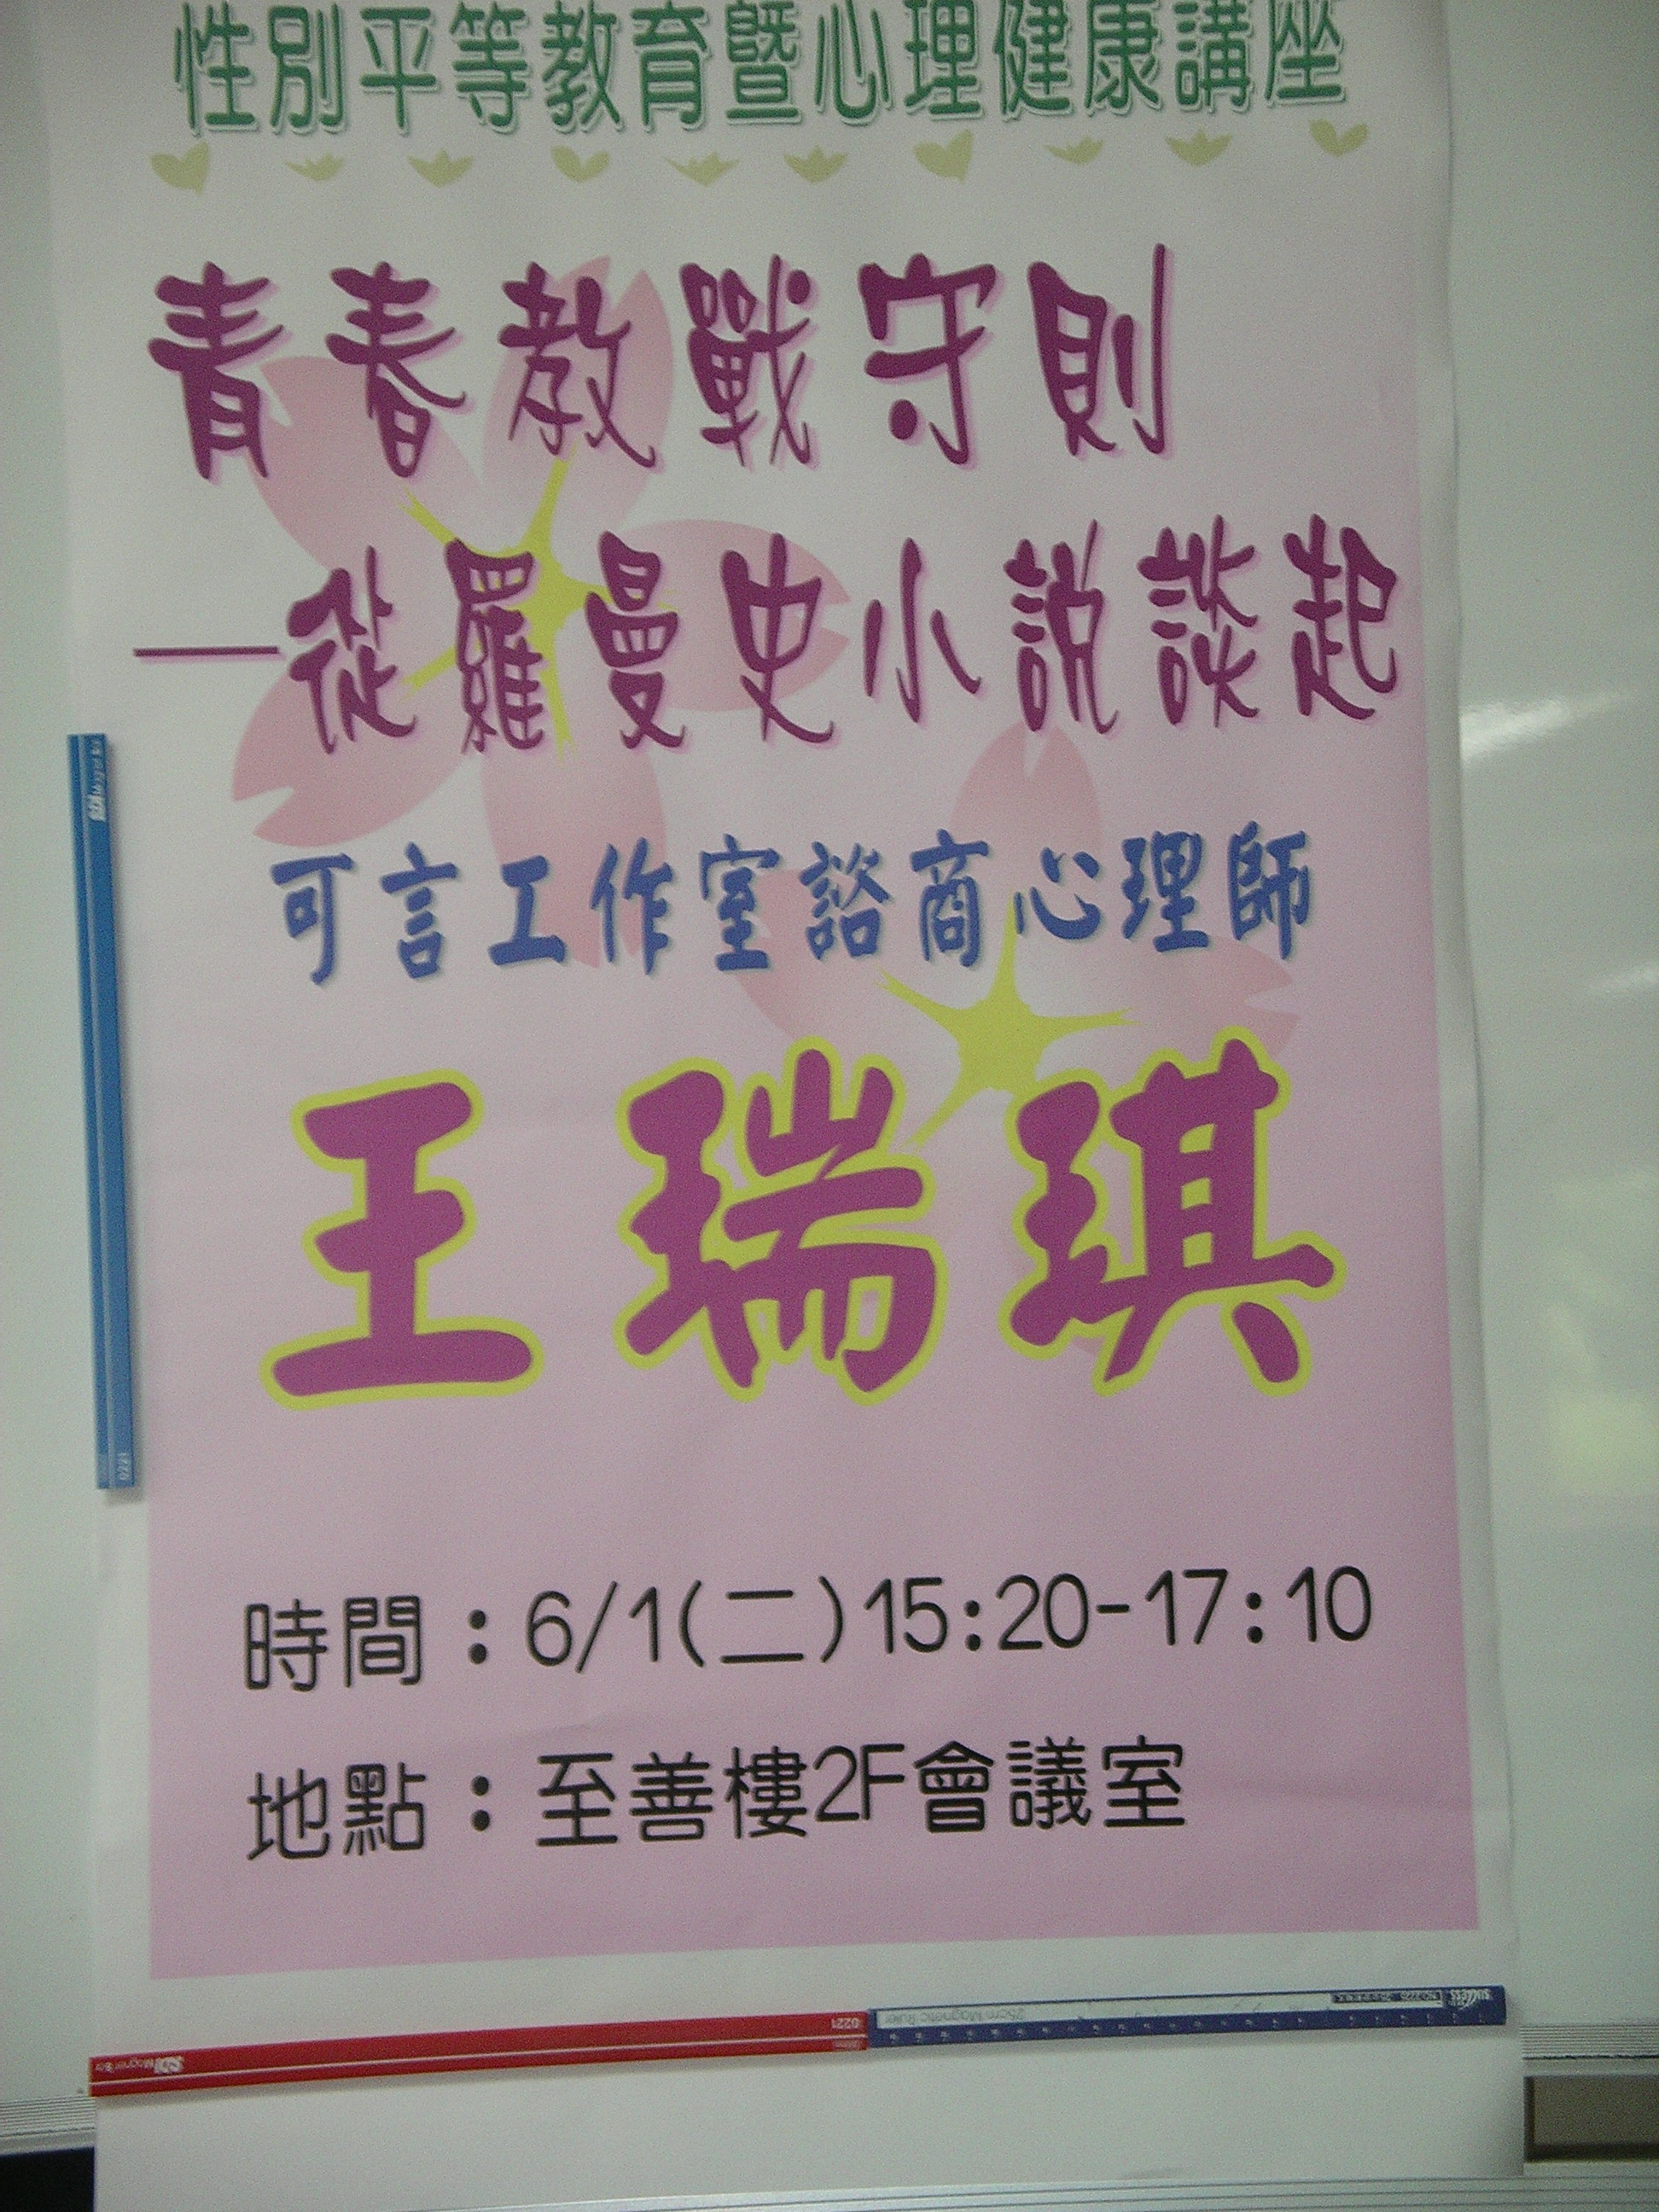 性別平等教育暨心理健康講座
青春教戰守則
—從羅曼史小說談起
可言工作室諮商心理師
王瑞琪
時間：6/1(二)15:20-17:10
地點：至善樓2F會議室
0221
0221
25cm Magnetic Ruler
success
Magnet Bar